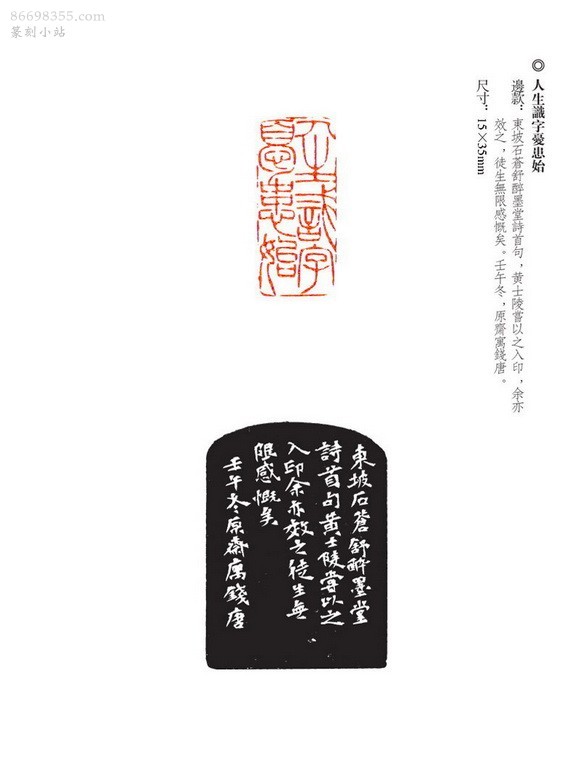 86698355.com
篆刻小站
◎ 人生識字憂患始
邊款：東坡石蒼舒醉墨堂詩首句，黄士陵嘗以之入印，余亦
效之，徒生無限感慨矣。壬午冬，原齋寓錢唐。
尺寸：15×35mm
人生識字
憂患始
東坡石蒼舒醉墨堂
詩首句黄士陵嘗以之
入印余亦效之徒生無
限感慨矣
壬午冬原齋寓錢唐